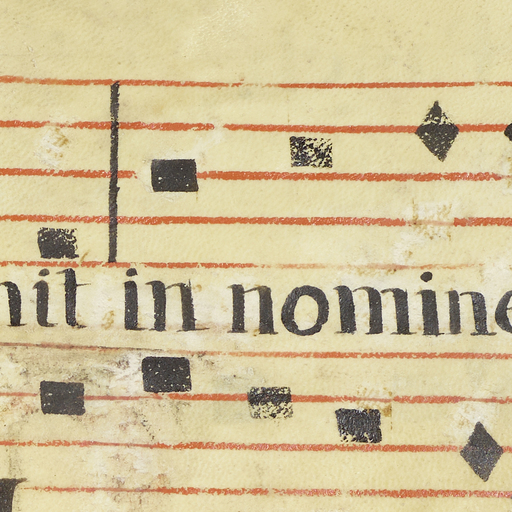 nit in nomine